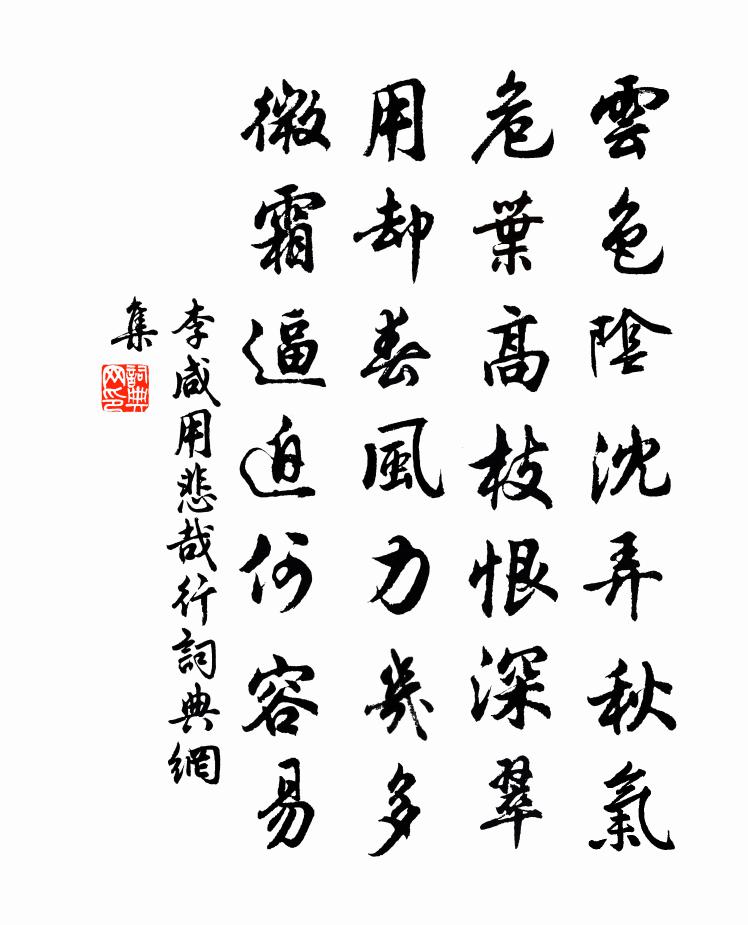 雲色陰沈弄秋氣
危葉高枝恨深翠
用却春風力幾多
微霜逼迫何容易
李咸用悲哉行詞典網
集
詞典
网印